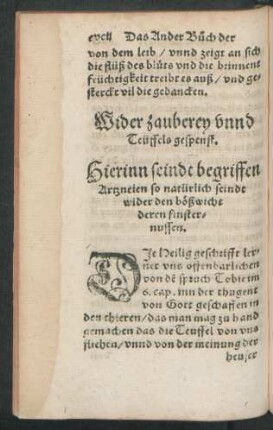 Das Ander Bůch der
von dem leib / vnnd zeigt an sich
die flüß des blůts vnd die brinnent
früchtigkeit treibt es auß / vnd ge
sterckt vil die gedancken.
Wider zauberey vnnd
Teüffels gespenst.
Hierinn seindt begriffen
Artzneien so natürlich seindt
wider den bößwicht
deren finster-
nussen.
DIe Heilig geschrifft ler
net vns offenbarlichen
von dē spruch Tobie im
6. cap. inn der thugent
von Gott geschaffen in
den thieren / das man mag zu hand
gemachen das die Teuffel von vns
fliehen / vnnd von der meinung der
heuser